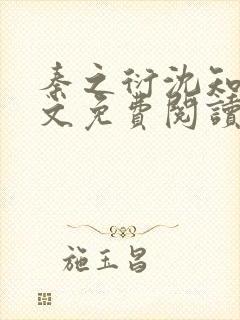 秦之衍沈知
文免費閱讀
施玉昌